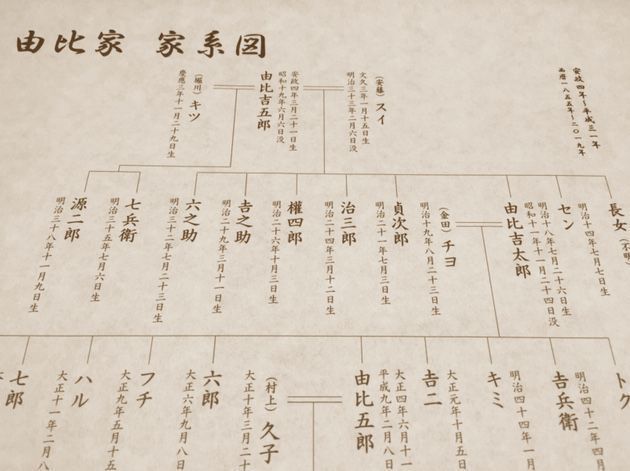 由比家 家系図
安政四年〜平成三一年
西暦一八五五年〜二〇一九年
（安藤）スイ
文久三年一月十五日生
明治三十三年二月六日没
由比吉五郎
安政四年三月二十一日生
昭和十九年六月六日没
（堀川）キツ
慶應三年十一月二十九日生
長女
明治十四年七月七日生
セン
明治十八年七月二十六日生
由比吉太郎
昭和十一年十一月二十四日没
（金田）チヨ
明治十九年八月二十三日生
貞次郎
明治二十一年七月三日生
治三郎
明治二十四年三月十二日生
權四郎
明治二十六年十月三日生
𠮷之助
明治二十九年三月十一日生
六之助
明治三十二年七月二十三日生
七兵衛
明治三十五年七月六日生
源二郎
明治三十八年十一月九日生
トク
明治四十二年四
𠮷兵衛
明治四十四年一月
キミ
大正元年十月五日
𠮷二
大正四年六月十一
由比五郎
平成九年二月八日
（村上）久子
大正十年三月二日
六郎
大正六年九月八日
フチ
大正九年五月十五
ハル
大正十一年二月八
七郎